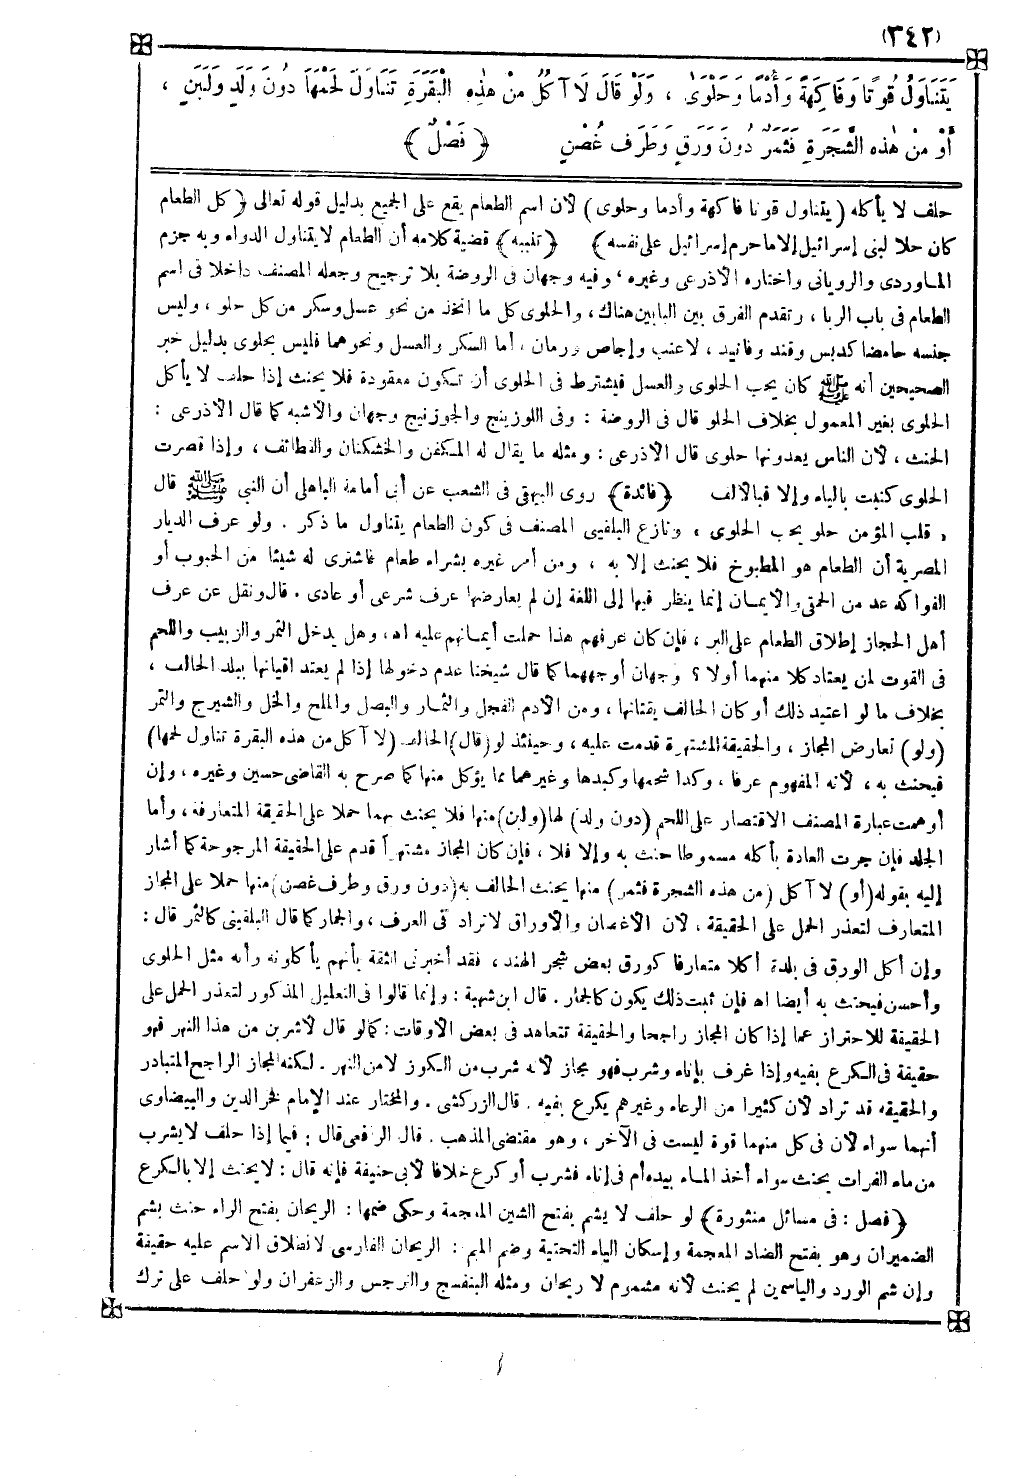 (٣٤٢)
يَتَنَاوَلُ قُوتًا وَفَاكِهَةً وَأُدْمًا وَحَلْوَىٰ ، وَلَوْ قَالَ لَا آكُلُ مِنْ هٰذِهِ الْبَقَرَةِ تَنَاوَلَ لَحْمَهَا دُونَ وَلَدٍ وَلَبَنٍ ،
أَوْ مِنْ هٰذِهِ الشَّجَرَةِ فَثَمَرٌ دُونَ وَرَقٍ وَطَرَفِ غُصْنٍ ﴿ فَصْلٌ ﴾
حلف لا يأكله ( يتناول قوتا فاكهة وأدما وحلوى ) لأن اسم الطعام يقع على الجميع بدليل قوله تعالى ﴿ كل الطعام
كان حلا لبنى إسرائيل إلا ما حرم إسرائيل على نفسه ﴾ ﴿ تنبيه ﴾ قضية كلامه أن الطعام لا يتناول الدواء وبه جزم
الماوردى والرويانى واختاره الأذرعى وغيره ، وفيه وجهان فى الروضة بلا ترجيح وجعله المصنف داخلا فى اسم
الطعام فى باب الربا ، وتقدم الفرق بين البابين هناك ، والحلوى كل ما اتخذ من نحو عسل وسكر من كل حلو ، وليس
جنسه حامضا كدبس وقند وفانيد ، لا عنب وإجاص ورمان ، أما السكر والعسل ونحوهما فليس بحلوى بدليل خبر
الصحيحين أنه ﷺ كان يحب الحلوى والعسل فيشترط فى الحلوى أن تكون معقودة فلا يحنث إذا حلف لا يأكل
الحلوى بغير المعمول بخلاف الحلو قال فى الروضة : وفى اللوزينج والجوزنيج وجهان والأشبه كما قال الأذرعى :
الحنث ، لأن الناس يعدونها حلوى قال الأذرعى : ومثله ما يقال له المكفن والخشكنان والقطائف ، وإذا قصرت
الحلوى كتبت بالياء وإلا فبالألف ﴿ فائدة ﴾ روى البيهقى فى الشعب عن أبى أمامة الباهلى أن النبى ﷺ قال
« قلب المؤمن حلو يحب الحلوى ، ونازع البلقينى المصنف فى كون الطعام يتناول ما ذكر . ولو عرف الديار
المصرية أن الطعام هو المطبوخ فلا يحنث إلا به ، ومن أمر غيره بشراء طعام فاشترى له شيئا من الحبوب أو
الفواكه عد من الحمقى والأيمان إنما ينظر فيها إلى اللغة إن لم يعارضها عرف شرعى أو عادى . قال ونقل عن عرف
أهل الحجاز إطلاق الطعام على البر ، فإن كان عرفهم هذا حملت أيمانهم عليه اه ، وهل يدخل التمر والزبيب واللحم
فى القوت لمن يعتاد كلا منهما أولا ؟ وجهان أوجههما كما قال شيخنا عدم دخولها إذا لم يعتد اقتياتها ببلد الحالف ،
بخلاف ما لو اعتيد ذلك أو كان الحالف يقتاتها ، ومن الأدم الفجل والثمار والبصل والملح والخل والشيرج والتمر
(ولو) تعارض المجاز ، والحقيقة المشتهرة قدمت عليه ، وحينئذ لو (قال) الحالف (لا آكل من هذه البقرة تناول لحمها)
فيحنث به ، لأنه المفهوم عرفا ، وكذا شحمها وكبدها وغيرهما مما يؤكل منها كما صرح به القاضى حسين وغيره ، وإن
أوهمت عبارة المصنف الاقتصار على اللحم (دون ولد) لها (ولبن) منها فلا يحنث بهما حملا على الحقيقة المتعارفة ، وأما
الجلد فإن جرت العادة بأكله مسموطا حنث به وإلا فلا ، فإن كان المجاز مشتهرا قدم على الحقيقة المرجوحة كما أشار
إليه بقوله (أو) لا آكل (من هذه الشجرة فثمر) منها يحنث الحالف به (دون ورق وطرف غصن) منها حملا على المجاز
المتعارف لتعذر الحمل على الحقيقة ، لأن الأغصان والأوراق لا تراد فى العرف ، والجمار كما قال البلقينى كالثمر قال :
وإن أكل الورق فى بلدة أكلا متعارفا كورق بعض شجر الهند ، فقد أخبرنى الثقة بأنهم يأكلونه وأنه مثل الحلوى
وأحسن فيحنث به أيضا اه فإن ثبت ذلك يكون كالجمار . قال ابن شهبة : وإنما قالوا فى التعليل المذكور لتعذر الحمل على
الحقيقة للاحتراز عما إذا كان المجاز راجحا والحقيقة تتعاهد فى بعض الأوقات : كما لو قال لأشربن من هذا النهر فهو
حقيقة فى الكرع بفيه وإذا غرف بإناء وشرب فهو مجاز لأنه شرب من الكوز لا من النهر . لكنه المجاز الراجح المتبادر
والحقيقة قد تراد لأن كثيرا من الرعاء وغيرهم يكرع بفيه . قال الزركشى . والمختار عند الإمام فخر الدين والبيضاوى
أنهما سواء لأن فى كل منهما قوة ليست فى الآخر ، وهو مقتضى المذهب . قال الرافعى قال : فيما إذا حلف لا يشرب
من ماء الفرات يحنث سواء أخذ الماء بيده أم فى إناء فشرب أو كرع خلافا لأبى حنيفة فإنه قال : لا يحنث إلا بالكرع
﴿ فصل : فى مسائل منثورة ﴾ لو حلف لا يشم بفتح الشين المعجمة وحكى ضمها : الريحان بفتح الراء حنث بشم
الضميران وهو بفتح الضاد المعجمة وإسكان الياء التحتية وضم الميم : الريحان الفارسى لانطلاق الاسم عليه حقيقة
وإن شم الورد والياسمين لم يحنث لأنه مشموم لا ريحان ومثله البنفسج والنرجس والزعفران ولو حلف على ترك